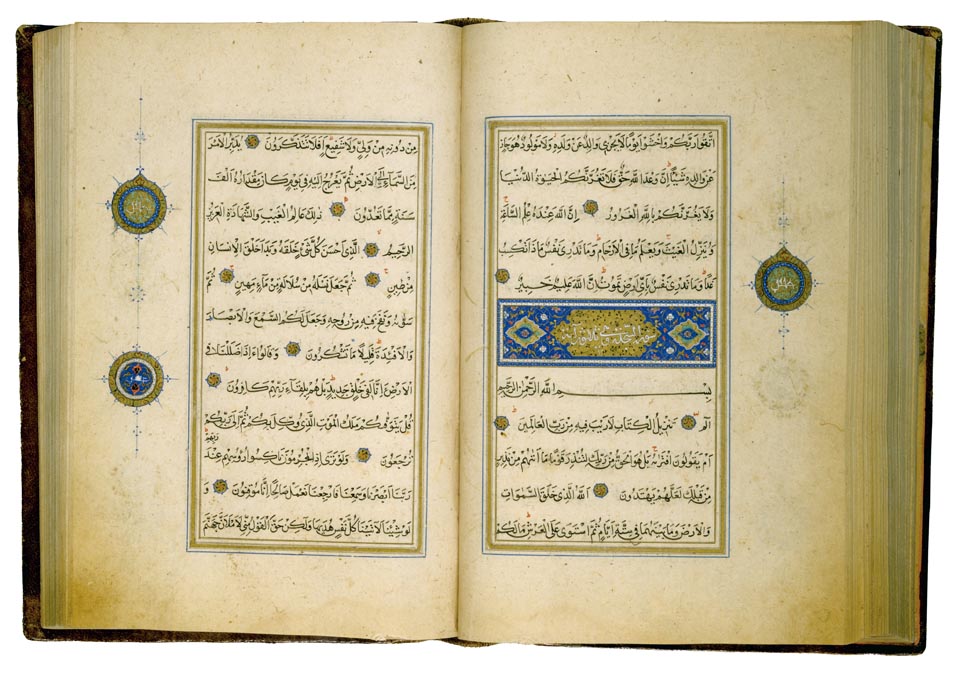 اتَّقُوا رَبَّكُمْ وَاخْشَوْا يَوْمًا لَا يَجْزِي وَالِدٌ عَنْ وَلَدِهِ وَلَا مَوْلُودٌ هُوَ جَازٍ
عَنْ وَالِدِهِ شَيْئًا إِنَّ وَعْدَ اللَّهِ حَقٌّ فَلَا تَغُرَّنَّكُمُ الْحَيَوةُ الدُّنْيَا
وَلَا يَغُرَّنَّكُمْ بِاللَّهِ الْغَرُورُ إِنَّ اللَّهَ عِنْدَهُ عِلْمُ السَّاعَةِ
وَيُنَزِّلُ الْغَيْثَ وَيَعْلَمُ مَا فِي الْأَرْحَامِ وَمَا تَدْرِي نَفْسٌ مَاذَا تَكْسِبُ
غَدًا وَمَا تَدْرِي نَفْسٌ بِأَيِّ أَرْضٍ تَمُوتُ إِنَّ اللَّهَ عَلِيمٌ خَبِيرٌ
سورة السجدة وهي ثلاثون آية
بِسْمِ اللَّهِ الرَّحْمَنِ الرَّحِيمِ
الم تَنْزِيلُ الْكِتَابِ لَا رَيْبَ فِيهِ مِنْ رَبِّ الْعَالَمِينَ
أَمْ يَقُولُونَ افْتَرَيهُ بَلْ هُوَ الْحَقُّ مِنْ رَبِّكَ لِتُنْذِرَ قَوْمًا مَا أَتَيهُمْ مِنْ نَذِيرٍ
مِنْ قَبْلِكَ لَعَلَّهُمْ يَهْتَدُونَ اللَّهُ الَّذِي خَلَقَ السَّمَوَاتِ
وَالْأَرْضَ وَمَا بَيْنَهُمَا فِي سِتَّةِ أَيَّامٍ ثُمَّ اسْتَوَى عَلَى الْعَرْشِ مَا لَكُمْ
مِنْ دُونِهِ مِنْ وَلِيٍّ وَلَا شَفِيعٍ أَفَلَا تَتَذَكَّرُونَ يُدَبِّرُ الْأَمْرَ
مِنَ السَّمَاءِ إِلَى الْأَرْضِ ثُمَّ يَعْرُجُ إِلَيْهِ فِي يَوْمٍ كَانَ مِقْدَارُهُ أَلْفَ
سَنَةٍ مِمَّا تَعُدُّونَ ذَلِكَ عَالِمُ الْغَيْبِ وَالشَّهَادَةِ الْعَزِيزُ
الرَّحِيمُ الَّذِي أَحْسَنَ كُلَّ شَيْءٍ خَلَقَهُ وَبَدَأَ خَلْقَ الْإِنْسَانِ
مِنْ طِينٍ ثُمَّ جَعَلَ نَسْلَهُ مِنْ سُلَالَةٍ مِنْ مَاءٍ مَهِينٍ ثُمَّ
سَوَّيهُ وَنَفَخَ فِيهِ مِنْ رُوحِهِ وَجَعَلَ لَكُمُ السَّمْعَ وَالْأَبْصَارَ
وَالْأَفْئِدَةَ قَلِيلًا مَا تَشْكُرُونَ وَقَالُوا أَإِذَا ضَلَلْنَا فِي
الْأَرْضِ أَإِنَّا لَفِي خَلْقٍ جَدِيدٍ بَلْ هُمْ بِلِقَاءِ رَبِّهِمْ كَافِرُونَ
قُلْ يَتَوَفَّيكُمْ مَلَكُ الْمَوْتِ الَّذِي وُكِّلَ بِكُمْ ثُمَّ إِلَى رَبِّكُمْ
تُرْجَعُونَ وَلَوْ تَرَى إِذِ الْمُجْرِمُونَ نَاكِسُوا رُءُوسِهِمْ عِنْدَ رَبِّهِمْ
رَبَّنَا أَبْصَرْنَا وَسَمِعْنَا فَارْجِعْنَا نَعْمَلْ صَالِحًا إِنَّا مُوقِنُونَ وَ
لَوْ شِئْنَا لَآتَيْنَا كُلَّ نَفْسٍ هُدَيهَا وَلَكِنْ حَقَّ الْقَوْلُ مِنِّي لَأَمْلَأَنَّ جَهَنَّمَ